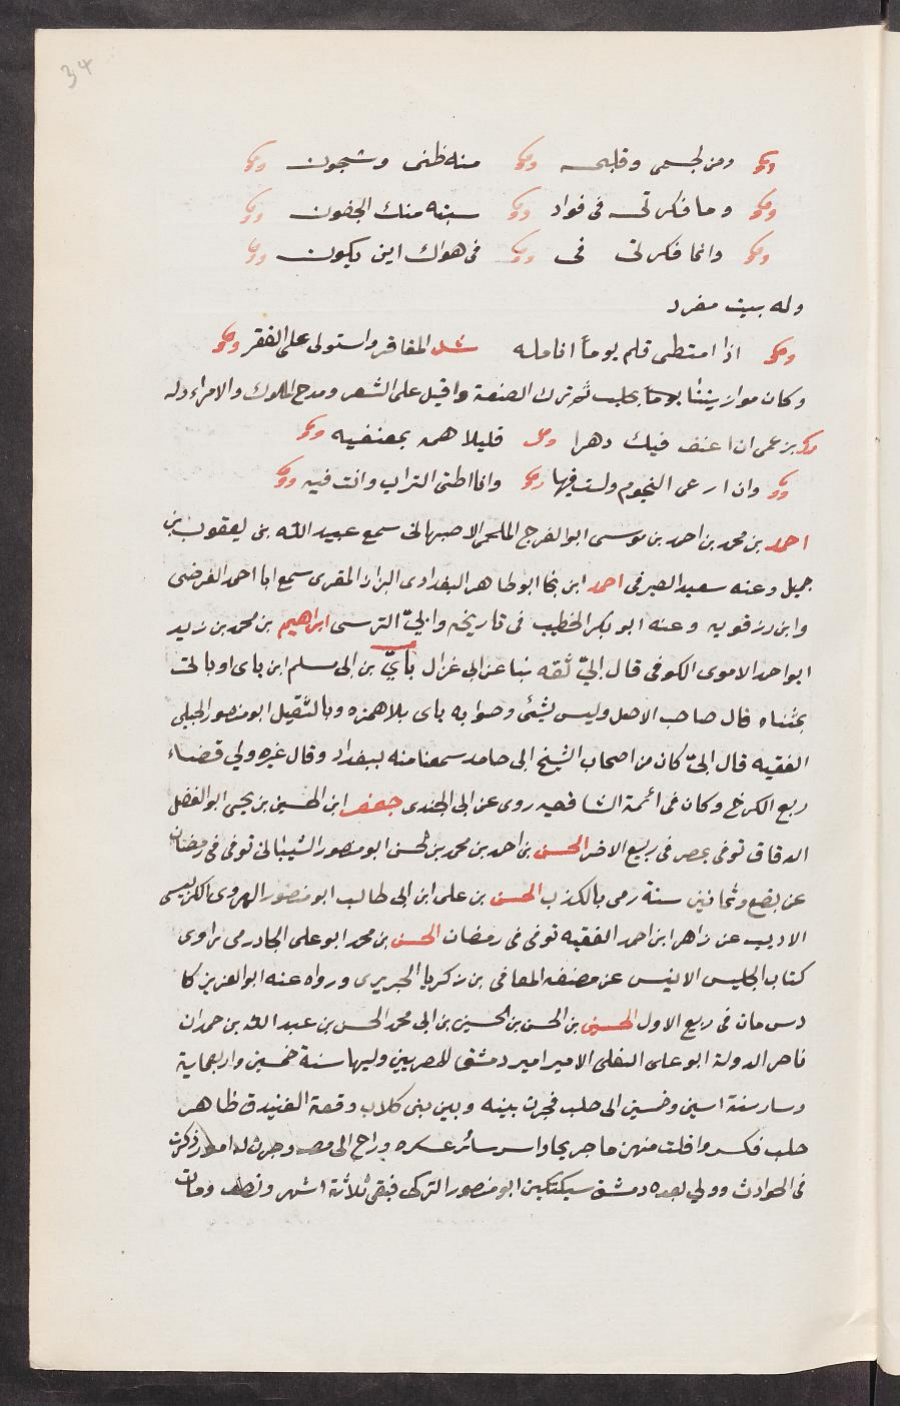 34
ومن لجسمى وقلبى منه ظنى وشجون
وما فكرتى فى فواد سبته منك الجفون
وانما فكرتى فى فى هواك اين يكون
وله بيت مفرد
اذا امتطى قلم يوماً انامله سد المفاقر واستولى على الفقر
وكان موازينيا يوماً بحلب ثم ترك الصنعة واقبل على الشعر ومدح الملوك والامراء وله
بزعمى ان اعنف فيك دهرا قليلا همه بمعنفيه
وان ارعى النجوم ولست فيها وانا اطئ التراب وانت فيه
احمد بن محمد بن احمد بن موسى ابو الفرج الملحمى الاصبهانى سمع عبيد الله بن يعقوب بن
جميل وعنه سعيد الصيرفى احمد ابن نجا ابو طاهر البغدادى البزاز المقرى سمع ابا احمد الفرضى
وابن رزقويه وعنه ابو بكر الخطيب فى تاريخه وابىّ النرسى ابراهيم بن محمد بن زيد
ابو احمد الاموى الكوفى قال ابىّ ثقه نبا عن ابى غزال باىّ بن ابى مسلم ابن باى او باتى
بمثناه قال صاحب الاصل وليس بشئ وصوابه باى بلا همزه وبالثقيل ابو منصور الجيلى
الفقيه قال ابىّ كان من اصحاب الشيخ ابى حامد سمعنا منه ببغداد وقال غيره ولى قضاء
ربع الكرخ وكان من ائمة الشافعيه روى عن ابى الجندى جعفر ابن الحسين بن يحيى ابو الفضل
الدقاق توفى بمصر فى ربيع الاخر الحسن بن احمد بن محمد بن الحسن ابو منصور الشيبانى توفى فى رمضان
عن بضع وثمانين سنة رمى بالكذب الحسن بن على ابن ابى طالب ابو منصور الهروى الكرابيسى
الاديب عن زاهر ابن احمد الفقيه توفى فى رمضان الحسن بن محمد ابو على الجازرى راوى
كتاب الجليس الانيس عن مصنفه المعافى بن زكريا الجريرى ورواه عنه ابو العز بن كا
دس مات فى ربيع الاول الحسين بن الحسن بن الحسين بن ابى محمد الحسن بن عبد الله بن حمدان
ناصر الدولة ابو على التغلبى الامير امير دمشق للمصريين وليها سنة خمسين واربعماية
وسار سنة اثنين وخمسين الى حلب فجرت بينه وبين بنى كلاب وقعة الفنيدق ظاهر
حلب فكسر وافلت منهزما جريحا واسر سائر عسكره وراح الى مصر وجرت له امور ذكرت
فى الحوادث وولى بعده دمشق سبكتكين ابو منصور التركى فبقى ثلاثة اشهر ونصف ومات